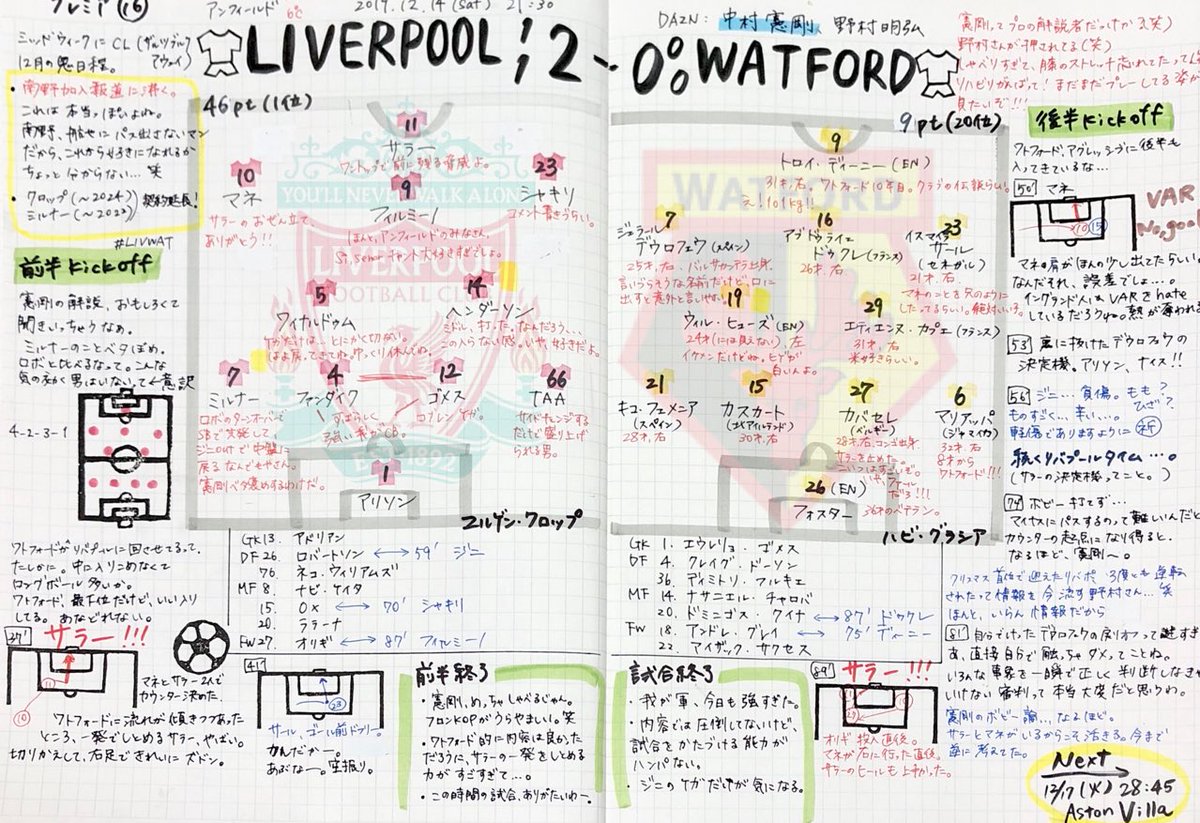 プレミア⑯
アンフィールド 6℃
2019.12.14 (sat) 21:30
LIVERPOOL ; 2 - 0 ; WATFORD
DAZN: 中村憲剛 野村明弘
ミッドウィークにCL(ザルツブルク
アウェイ)
12月の鬼日程。
・南野加入報道に沸く。
これは本当っぽいよね。
だから、これから好きになれるか
ちょっと分からない… 笑
・クロップ(〜2024)
ミルナー(〜2022)
契約延長!
#LIVWAT
前半kickoff
憲剛の解説、おもしろくて
聞きいっちゃうなぁ。
ミルナーのことベタぼめ。
ロボと比べるなって。こんな
男はいないって←意訳
4-2-3-1
46pt(1位)
11
サラー
ワントップで前に残る脅威よ。
10
マネ
サラーのおぜん立て
ありがとう!!
9
フィルミーノ
ほんと、アンフィールドのみなさん、
Si, senor チャント大好きすぎでしょ。
23
シャキリ
コメント書きづらい。
YOU'LL NEVER WALK ALONE
LIVERPOOL
FOOTBALL CLUB
EST. 1892
5
ワイナルドゥム
ケガだけは…とにかく切ない。
はよ戻ってきてね。ゆっくり休んでね。
14
ヘンダーソン
ミドル、打った。なんだろう、、、
この入らない感。いや、好きだよ。
7
ミルナー
ロボのターンオーバーで
SBで先発して
ジニOUTで中盤に
戻る なんでもやさん。
憲剛ベタ褒めするわけだ。
4
ファンダイク
12
ゴメス
すばらしく
ロブレンケガ。
66
TAA
サイドチェンジする
だけで盛り上げ
られる男。
1
アリソン
ユルゲン・クロップ
9pt(20位)
9
トロイ・ディーニー(EN)
31才。右。ワトフォード10年目。クラブの伝説らしい。
え!101kg!!
WATFORD
7
ジェラール
デウロフェウ(スペイン)
25才。右。バルサカンテラ出身。
言いづらそうな名前だけど、口に
出すと意外と言いしゃい。
16
アブドゥライェ
ドゥクレ(フランス)
26才。右
23
イスマイラ
サール
(セネガル)
21才。右
マネのことを兄のように
したってるらしい。絶対いい子。
19
ウィル・ヒューズ(EN)
24才(には見えない)。左
イケメンだけどね。ヒゲが
白いんよ。
29
エティエンヌ・カプエ(フランス)
31才。右
21
キコ・フェメニア
(スペイン)
28才。右
15
カスカート
(北アイルランド)
30才。右
27
カバセレ
(ベルギー)
28才。右。コンゴ出身
サラーを止めた。
6
マリアッパ
(ジャマイカ)
32才。右
8才から
ワトフォード!!!
26(EN)
フォスター
36才のベテラン。
ハビ・グラシア
憲剛ってプロの解説者だっけか?(笑)
野村さんが押されてる(笑)
しゃべりすぎて、膝のストレッチ忘れてたってん
リハビリがんばって!まだまだプレーしてる姿が
見たいぞ!!!
後半kickoff
ワトフォード、アグレッシブに後半も
入ってきているな…
50' マネ
VAR
No goal
マネの肩がほんの少し出てたらしい。
なんだそれ、誤差でしょ…。
イングランド人もVARをhate
しているだろうね。熱が奪われる
53' 裏に抜けたデウロフェウの
決定機。アリソン、ナイス!!
56' ジニ…負傷。もも?
ひざ?
ものすごく…辛い…。
軽傷でありますように 祈
続くリバプールタイム…。
(サラーの決定機ってこと。)
74' ボビー打てず…
マイナスにパスするのって難しいんだと。
カウンターの起点になり得ると。
なるほど、憲剛〜。
クリスマス首位で迎えたリバポ、3度とも逆転
されたって情報を今流す野村さん…笑
ほんと、いらん情報だから
81' 自分でけったデウロフェウの戻りオフって難しすぎ
あ、直接自分で触っちゃダメってことね。
いろんな事象を一瞬で正しく判断しなきゃ
いけない審判って本当大変だと思うわ。
憲剛のボビー論…なるほど。
サラーとマネがいるからこそ活きる。今まで
逆に考えてた。
Next
12/17(火) 28:45
Aston Villa
GK 13. アドリアン
DF 26 ロバートソン ⟷ 59' ジニ
76 ネコ・ウィリアムズ
MF 8 ナビ・ケイタ
15. OX ⟷ 70' シャキリ
20 ララーナ
FW 27 オリギ ⟷ 87' フィルミーノ
GK 1. エウレリョ・ゴメス
DF 4. クレイグ・ドーソン
36. ディミトリ・フルキエ
MF 14. ナサニエル・チャロバ
20. ドミンゴス・クイナ ⟷ 87' ドゥクレ
FW 18. アンドレ・グレイ ⟷ 75' ディーニー
22. アイザック・サクセス
ワトフォードがリバプールに回させてるって。
たしかに。中に入りこめなくて
ロングボール多いか。
ワトフォード、最下位だけど、いい入り
してる。あなどれない。
37' サラー!!!
マネとサラー2人で
カウンター決めた。
ワトフォードに流れが傾きつつあった
ところ、一発でしとめるサラー、やばい。
切りかえして、右足できれいにズドン。
41'
サール、ゴール前ドフリー。
かんだかー。
あぶなー。空振り。
前半終了
・憲剛、めっちゃしゃべるじゃん。
フロンKOPがうらやましい。笑
・ワトフォード的に内容は良かった
だろうに、サラーの一発をしとめる
力がすごすぎて…。
・この時間の試合、ありがたいわー。
試合終了
・我が軍、今日も強すぎた。
・内容では圧倒してないけど、
試合をかたづける能力が
ハンパない。
・ジニのケガだけが気になる。
89' サラー!!!
オリギ投入直後。
マネが右に行った直後。
サラーのヒールも上手かった。